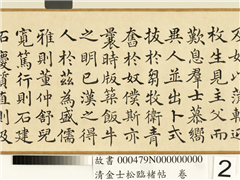 及始以蒲輪迎
枚生見主父而
歎息羣士慕嚮
異人並出卜式
拔於芻牧衛青
奮於奴僕斯亦
曩時版築飯牛
之明已漢之得
人於茲為盛儒
雅則董仲舒兒
寬篤行則石建
石慶質直則汲
故書 000479N000000000
清金士松臨褚帖 卷
2